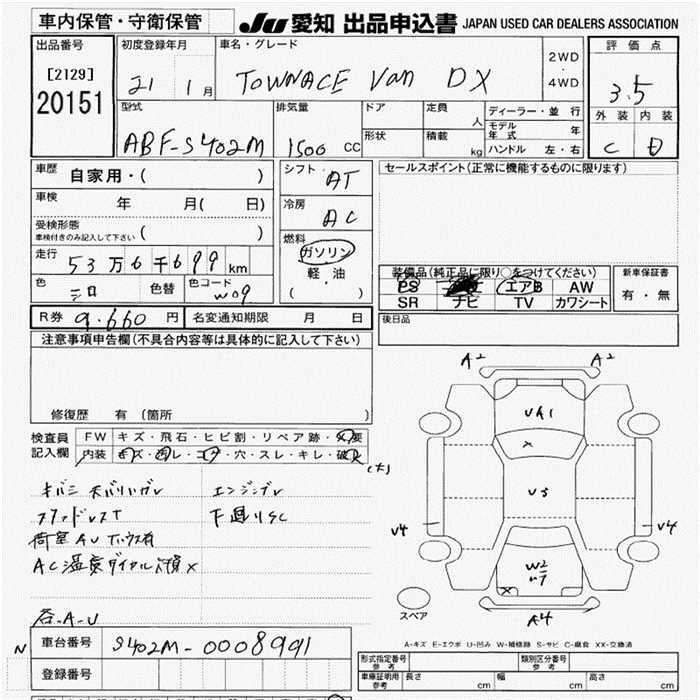 車内保管・守衛保管
JU 愛知 出品申込書 JAPAN USED CAR DEALERS ASSOCIATION
出品番号
[2129]
20151
初度登録年月
21 1月
車名・グレード
TOWNACE Van DX
2WD
・
4WD
評価点
3.5
外装 内装
C D
型式
ABF-S402M
排気量
1500 CC
ドア
形状
定員
人
積載
kg
ディーラー・並行
モデル年式 年
ハンドル 左・右
車歴
自家用・( )
車検
年 月( 日)
受検形態
車検付きのみ記入して下さい ( )
走行
53万6千699km
色
シロ
色替
色コード
W09
シフト
AT
冷房
AC
燃料
ガソリン
軽・油
( )
セールスポイント(正常に機能するものに限ります)
装備品(純正品に限り○をつけてください)
PS エアB AW
SR ナビ TV カワシート
新車保証書
有・無
後日品
R券 9.660円
名変通知期限 月 日
注意事項申告欄(不具合内容等は具体的に記入して下さい)
修復歴 有 (箇所 )
検査員
記入欄
FW キズ・飛石・ヒビ割・リペア跡・X要
内装 キズ・汚レ・コゲ・穴・スレ・キレ・破レ
エンジン
荷室
下廻り
AC温度ダイヤル
A2 A2
UA1
X
U3
U4 U4
W2
X
A4
スペア
A-キズ E-エクボ U-凹み W-補修跡 S-サビ C-腐食 XX-交換済
車台番号
S402M-0008991
登録番号
形式指定番号
参考
類別区分番号
参考
車庫証明用
参考
長さ cm
幅 cm
高さ cm